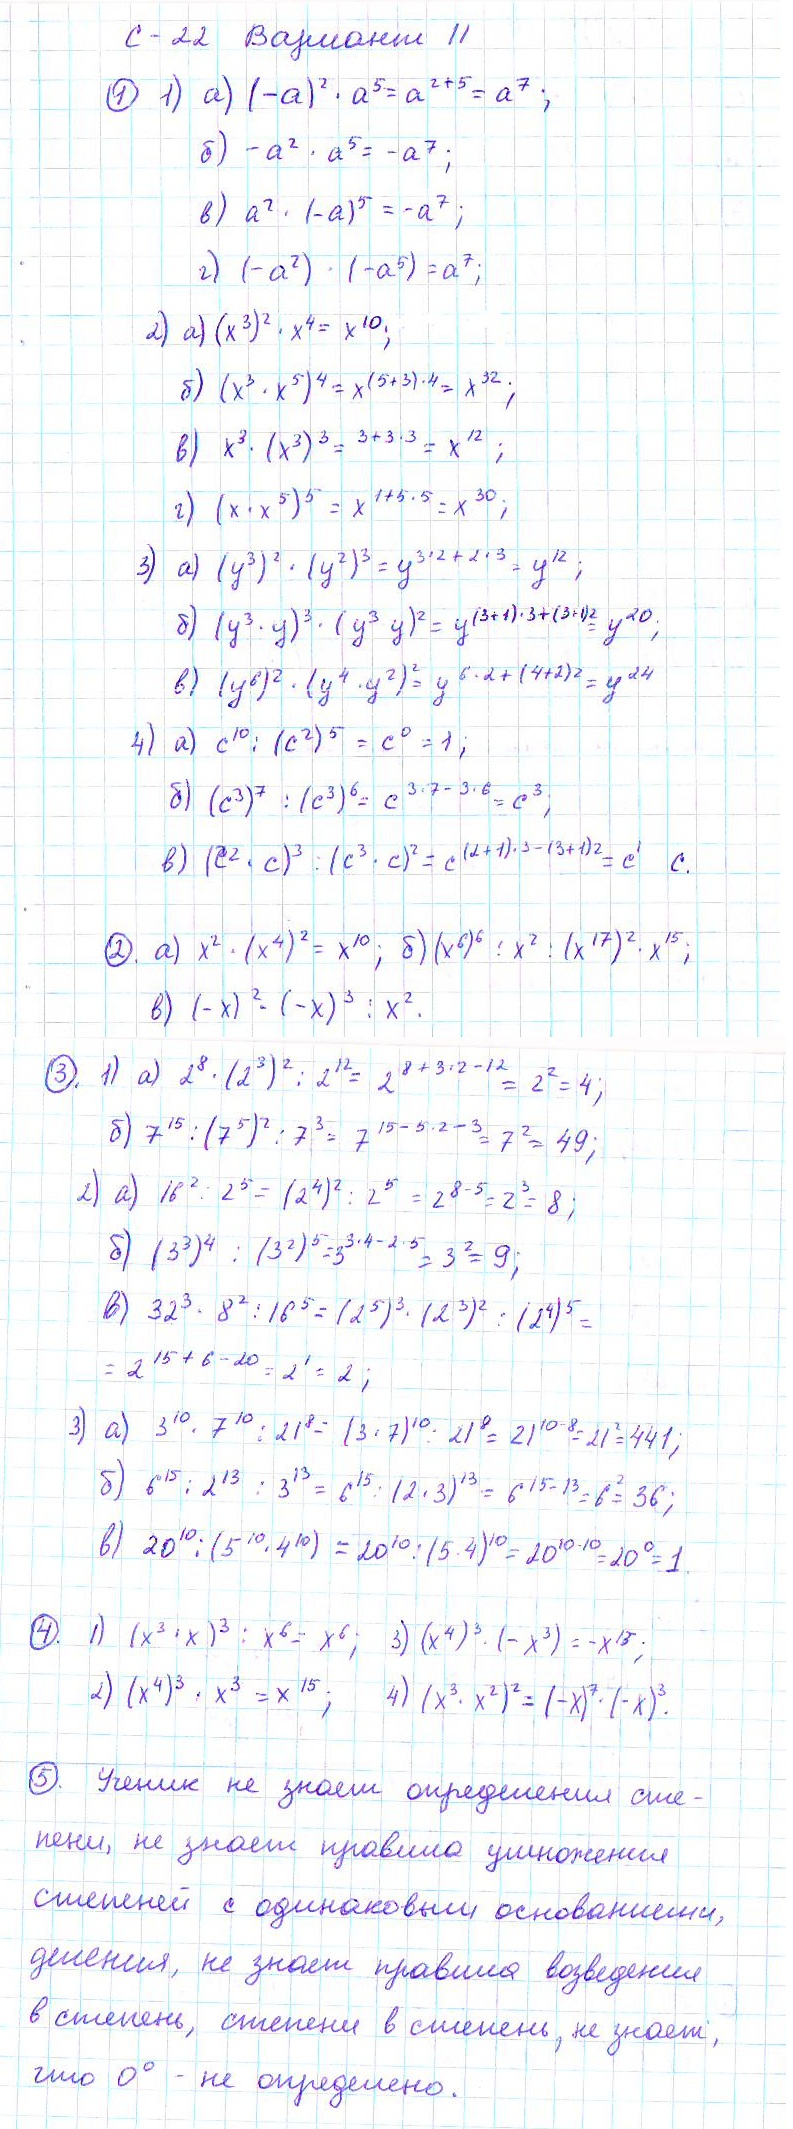 С-22 Вариант II
① 1) а) (-a)² · a⁵ = a²⁺⁵ = a⁷;
б) -a² · a⁵ = -a⁷;
в) a² · (-a)⁵ = -a⁷;
г) (-a²) · (-a⁵) = a⁷;
2) а) (x³)² · x⁴ = x¹⁰;
б) (x³ · x⁵)⁴ = x⁽⁵⁺³⁾·⁴ = x³²;
в) x³ · (x³)³ = ³⁺³·³ = x¹²;
г) (x · x⁵)⁵ = x¹⁺⁵·⁵ = x³⁰;
3) а) (y³)² · (y²)³ = y³·²⁺²·³ = y¹²;
б) (y³ · y)³ · (y³ y)² = y⁽³⁺¹⁾·³⁺⁽³⁺¹⁾² = y²⁰;
в) (y⁶)² · (y⁴ · y²)² = y⁶·²⁺⁽⁴⁺²⁾² = y²⁴
4) а) c¹⁰ : (c²)⁵ = c⁰ = 1;
б) (c³)⁷ : (c³)⁶ = c³·⁷⁻³·⁶ = c³;
в) (c² · c)³ : (c³ · c)² = c⁽²⁺¹⁾·³⁻⁽³⁺¹⁾² = c¹ c.
②. а) x² · (x⁴)² = x¹⁰; б) (x⁶)⁶ : x² : (x¹⁷)² · x¹⁵;
в) (-x)² · (-x)³ : x².
③. 1) а) 2⁸ · (2³)² : 2¹² = 2⁸⁺³·²⁻¹² = 2² = 4;
б) 7¹⁵ : (7⁵)² : 7³ = 7¹⁵⁻⁵·²⁻³ = 7² = 49;
2) а) 16² : 2⁵ = (2⁴)² : 2⁵ = 2⁸⁻⁵ = 2³ = 8;
б) (3³)⁴ : (3²)⁵ = 3³·⁴⁻²·⁵ = 3² = 9;
в) 32³ · 8² : 16⁵ = (2⁵)³ · (2³)² : (2⁴)⁵ =
= 2¹⁵⁺⁶⁻²⁰ = 2¹ = 2;
3) а) 3¹⁰ · 7¹⁰ : 21⁸ = (3 · 7)¹⁰ : 21⁸ = 21¹⁰⁻⁸ = 21² = 441;
б) 6¹⁵ : 2¹³ : 3¹³ = 6¹⁵ : (2 · 3)¹³ = 6¹⁵⁻¹³ = 6² = 36;
в) 20¹⁰ : (5¹⁰ · 4¹⁰) = 20¹⁰ : (5 · 4)¹⁰ = 20¹⁰⁻¹⁰ = 20⁰ = 1.
④. 1) (x³ · x)³ : x⁶ = x⁶; 3) (x⁴)³ · (-x³) = -x¹⁵;
2) (x⁴)³ · x³ = x¹⁵; 4) (x³ · x²)² = (-x)⁷ · (-x)³.
⑤. Ученик не знает определения сте-
пени, не знает правила умножения
степеней с одинаковыми основаниями,
деления, не знает правила возведения
в степень, степени в степень, не знает,
что 0⁰ - не определено.